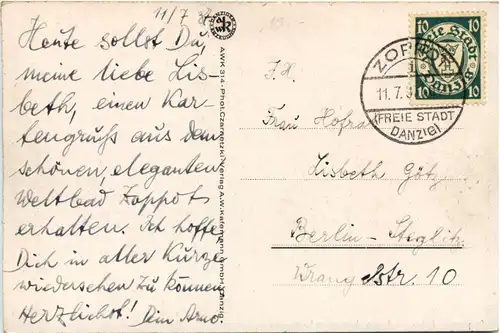 11/7 37
Heute sollst Du,
meine liebe Lis-
beth, einen Kar-
tengruß aus dem
schönen, eleganten
Weltbad Zoppot
erhalten. Ich hoffe
Dich in aller Kürze
wiedersehen zu können
Herzlichst! Dein Arno.
AWK 314. Phot. Czarnetzki Verlag A.W. Kafemann GmbH Danzig
10 Freie Stadt 10
10 Danzig 10
11.7.
(FREIE STADT
DANZIG)
Frau Hofrat
Lisbeth Götz
Berlin-Steglitz
Wrangelstr. 10